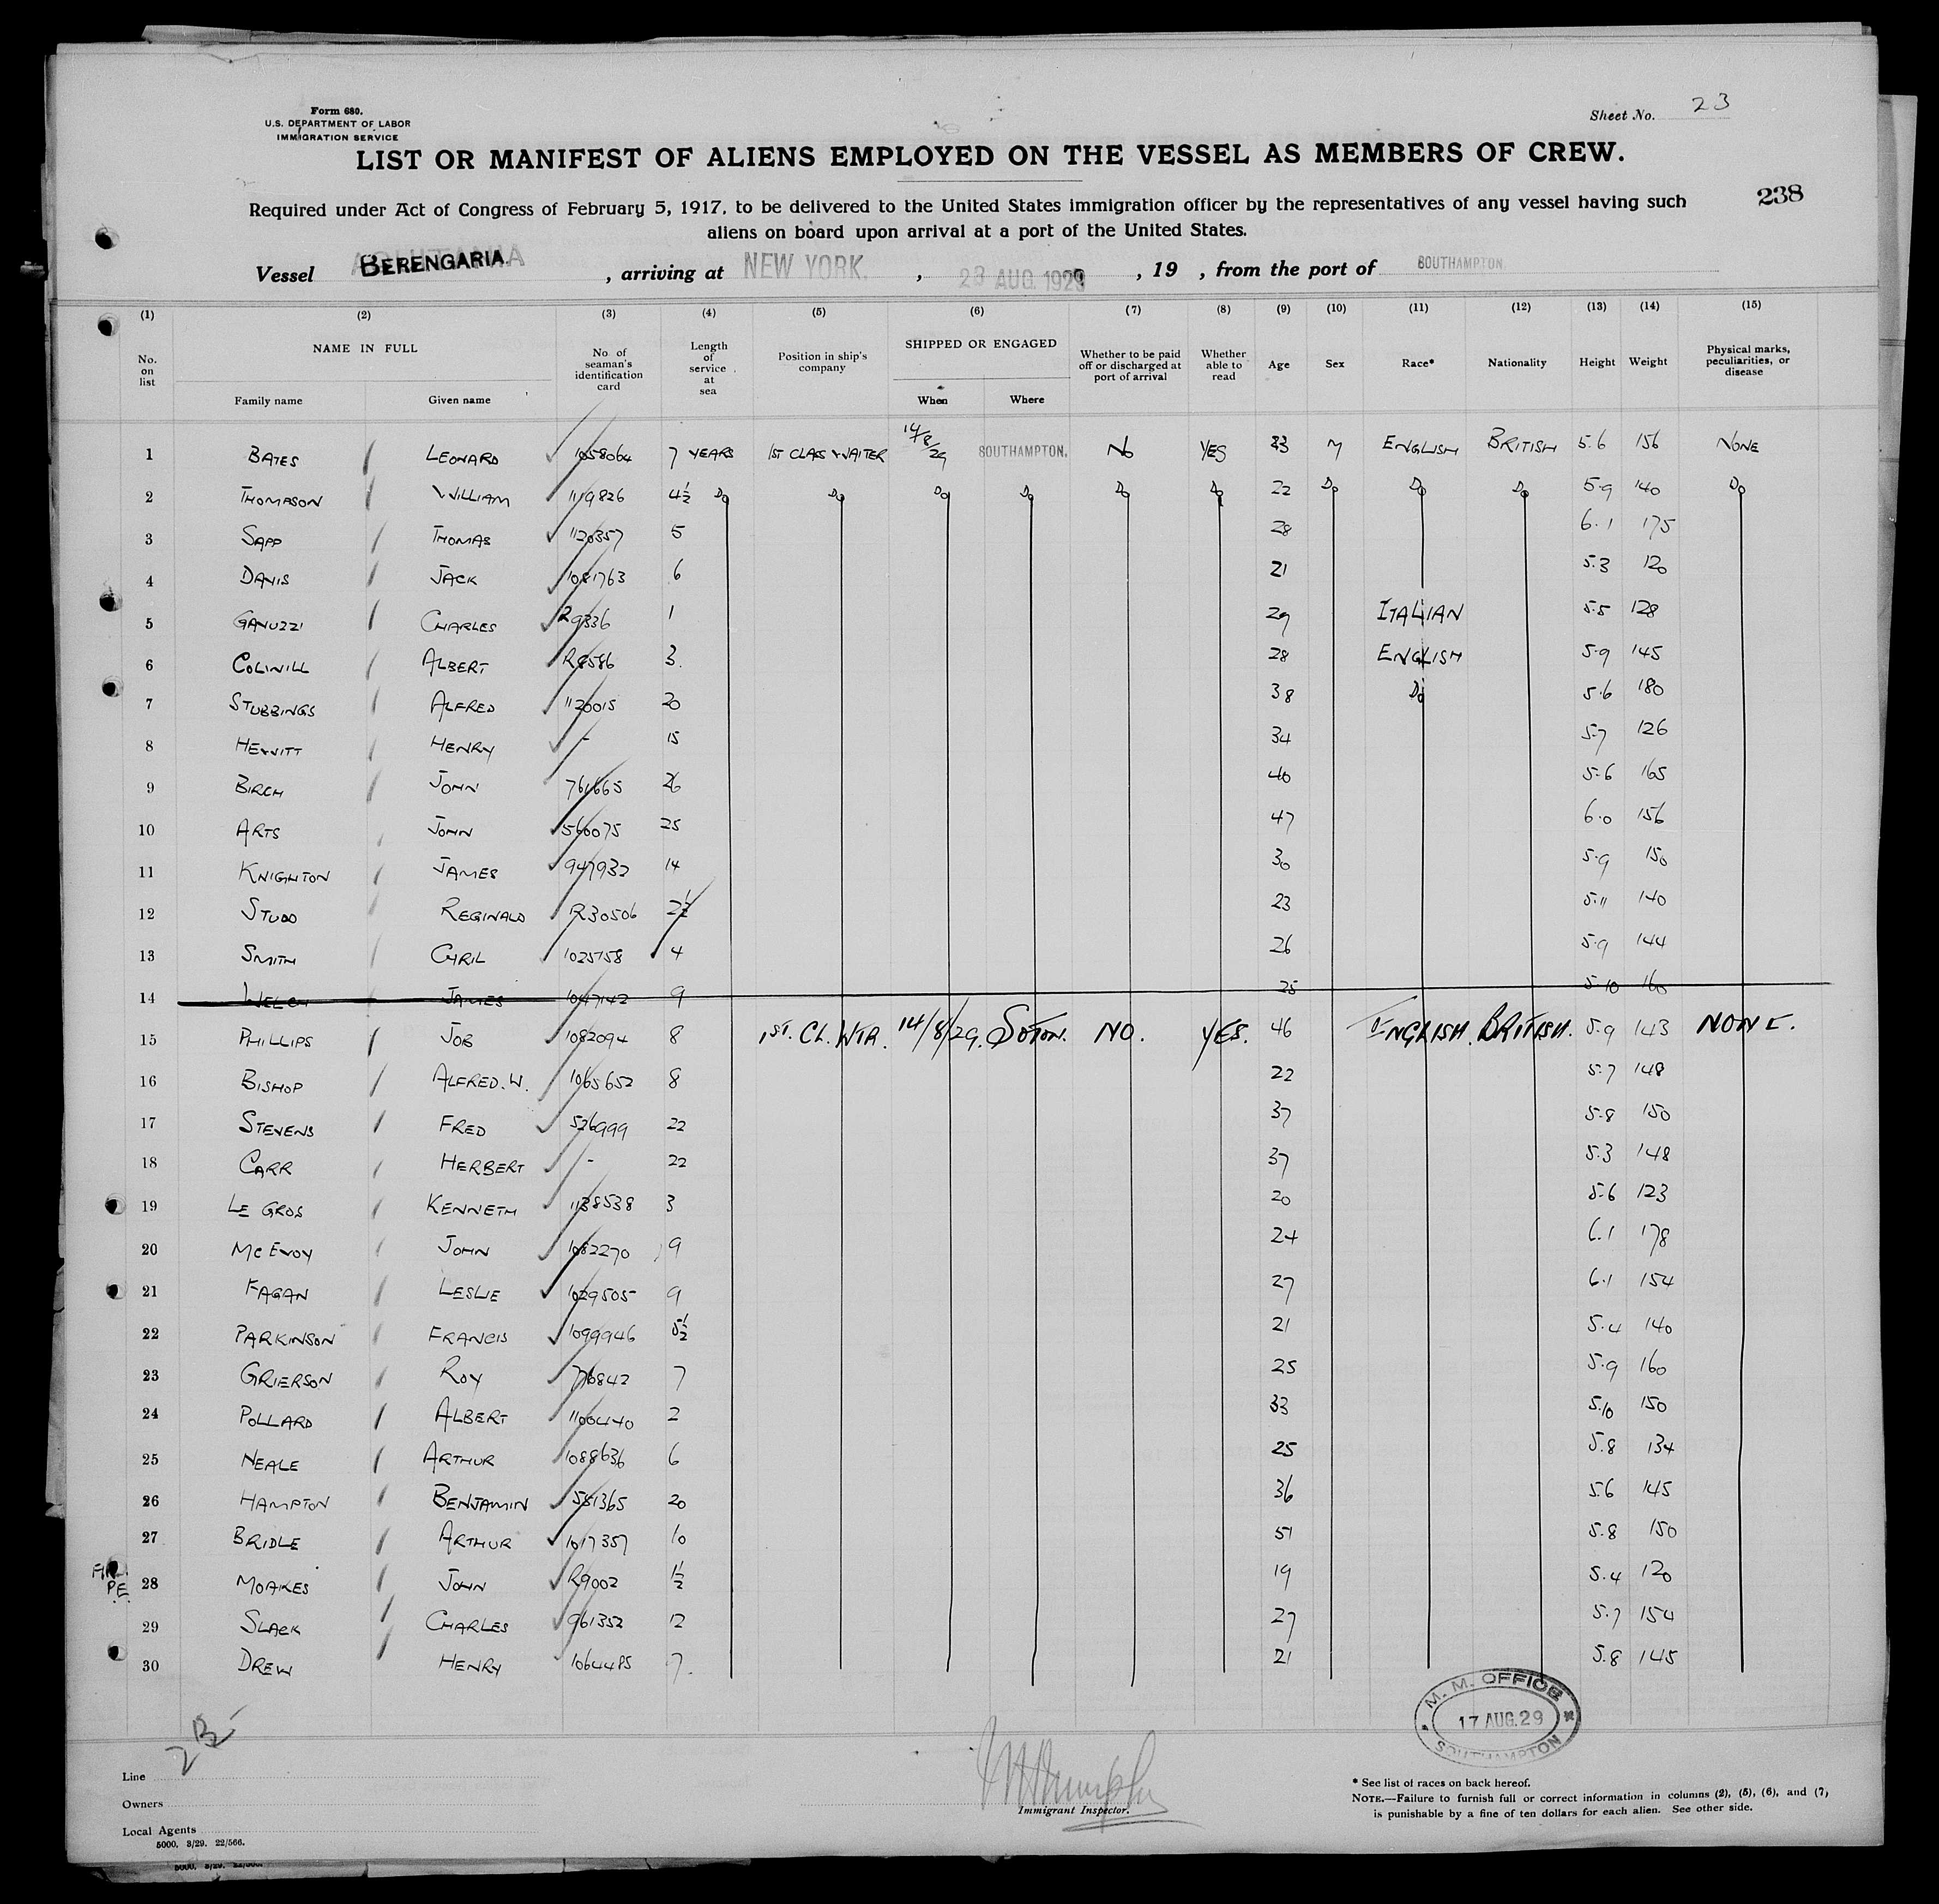 Form 680.
U.S. DEPARTMENT OF LABOR
IMMIGRATION SERVICE
Sheet No. 23
LIST OR MANIFEST OF ALIENS EMPLOYED ON THE VESSEL AS MEMBERS OF CREW.
238
Required under Act of Congress of February 5, 1917, to be delivered to the United States immigration officer by the representatives of any vessel having such
aliens on board upon arrival at a port of the United States.
Vessel BERENGARIA , arriving at NEW YORK. , 23 AUG. 1929 , 19 , from the port of SOUTHAMPTON
(1) (2) (3) (4) (5) (6) (7) (8) (9) (10) (11) (12) (13) (14) (15)
No. on list NAME IN FULL Family name Given name No. of seaman's identification card Length of service at sea Position in ship's company SHIPPED OR ENGAGED When Where Whether to be paid off or discharged at port of arrival Whether able to read Age Sex Race* Nationality Height Weight Physical marks, peculiarities, or disease
1 BATES LEONARD 1058064 7 YEARS 1ST CLASS WAITER 14/8/29 SOUTHAMPTON. NO YES 33 M ENGLISH BRITISH 5.6 156 NONE
2 THOMPSON WILLIAM 1119826 4½ Do Do Do Do Do Do 22 Do Do Do 5.9 140 Do
3 SAPP THOMAS 1120357 5 28 6.1 175
4 DAVIS JACK 1081763 6 21 5.3 120
5 GANUZZI CHARLES R9336 1 29 ITALIAN 5.5 128
6 COLINILL ALBERT R8586 3. 28 ENGLISH 5.9 145
7 STUBBINGS ALFRED 1120015 20 38 Do 5.6 180
8 HEWITT HENRY - 15 34 5.7 126
9 BIRCH JOHN 761665 26 40 5.6 165
10 ARTS JOHN 560075 25 47 6.0 156
11 KNIGHTON JAMES 947932 14 30 5.9 150
12 STUDD REGINALD R30506 2½ 23 5.11 140
13 SMITH CYRIL 1025758 4 26 5.9 144
14 WELCH JAMES 1047142 9 25 5.10 160
15 PHILLIPS JOB 1082094 8 1ST. CL. WTR. 14/8/29. SOTON. NO. YES. 46 ENGLISH. BRITISH. 5.9 143 NONE.
16 BISHOP ALFRED. W. 1065652 8 22 5.7 148
17 STEVENS FRED 526999 22 37 5.8 150
18 CARR HERBERT - 22 37 5.3 148
19 LE GROS KENNETH 1138538 3 20 5.6 123
20 MC EVOY JOHN 1082270 9 24 6.1 178
21 FAGAN LESLIE 1029505 9 27 6.1 154
22 PARKINSON FRANCIS 1099946 5½ 21 5.4 140
23 GRIERSON ROY 776842 7 25 5.9 160
24 POLLARD ALBERT 1100440 2 33 5.10 150
25 NEALE ARTHUR 1088636 6 25 5.8 134
26 HAMPTON BENJAMIN 581365 20 36 5.6 145
27 BRIDLE ARTHUR 1017357 10 51 5.8 150
28 MOAKES JOHN R9002 1½ 19 5.4 120
29 SLACK CHARLES 961352 12 27 5.7 154
30 DREW HENRY 1064485 7. 21 5.8 145
M. M. OFFICE
17 AUG. 29
SOUTHAMPTON
Line
Owners
Local Agents
5000, 3/29. 22/566.
Immigrant Inspector.
* See list of races on back hereof.
NOTE.—Failure to furnish full or correct information in columns (2), (5), (6), and (7),
is punishable by a fine of ten dollars for each alien. See other side.
5000, 3/29. 22/566.